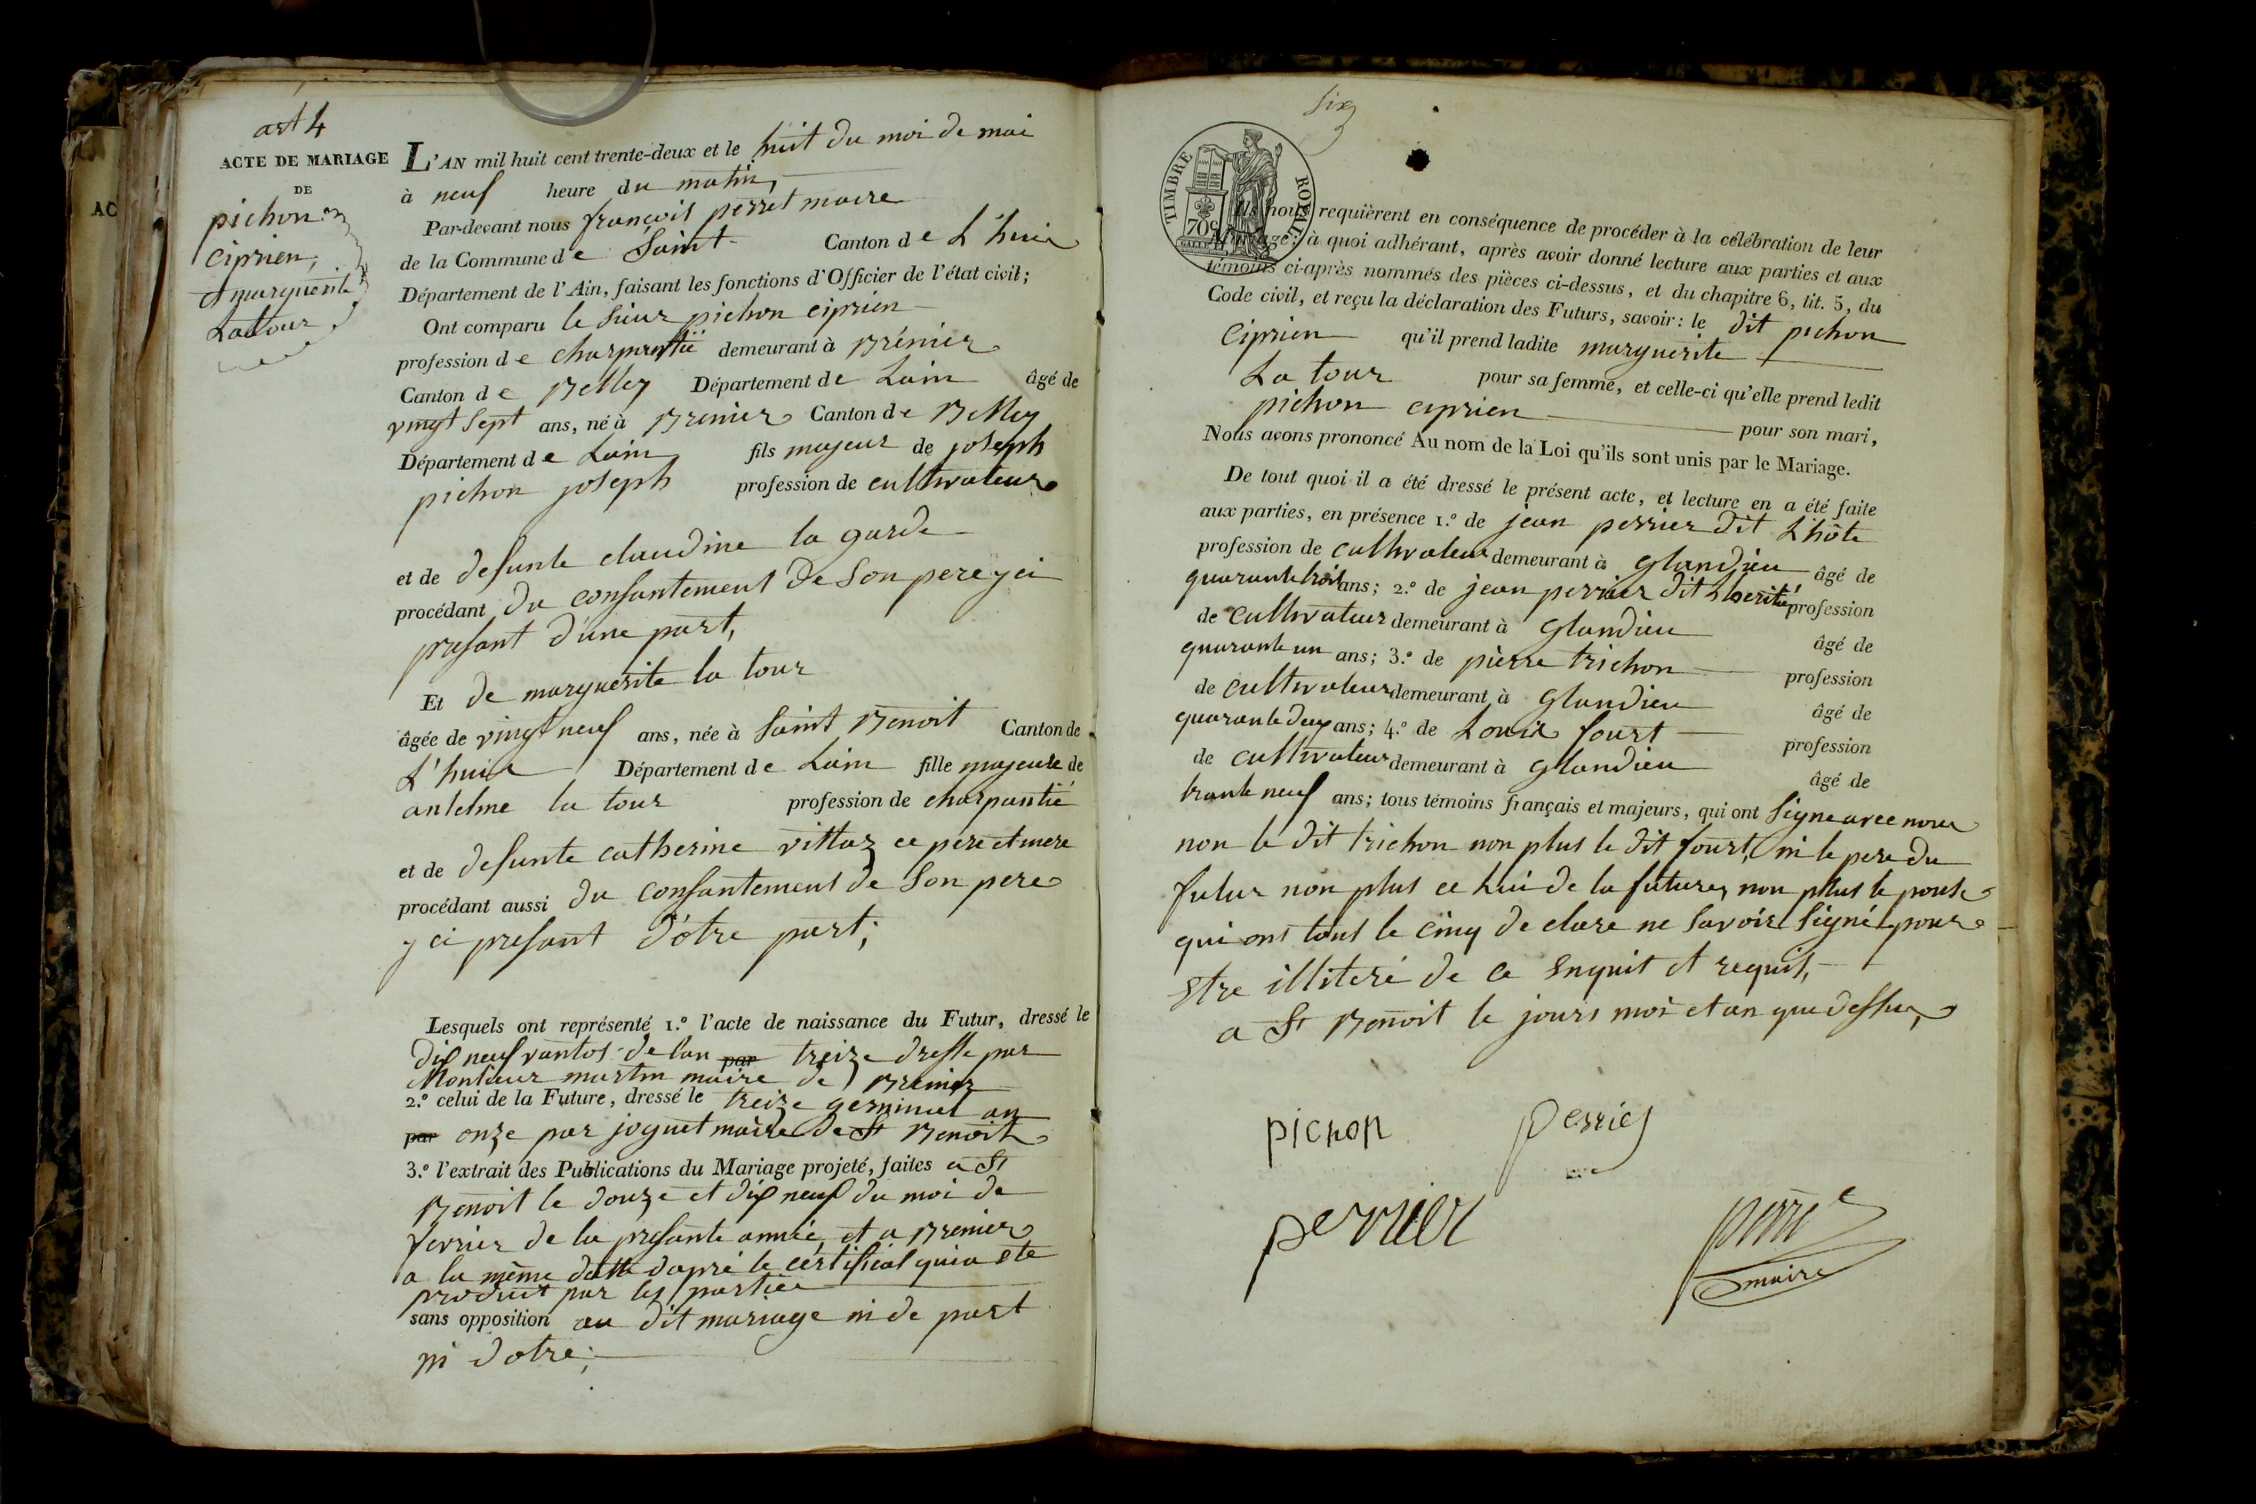 art 4
ACTE DE MARIAGE
DE
pichon
Ciprien,
et marguerite
Latour
AC
L'AN mil huit cent trente-deux et le huit du moi de mai
à neuf heure du matin,
Par-devant nous françois perret maire
de la Commune de Saint- Canton de L'huis
Département de l'Ain, faisant les fonctions d'Officier de l'état civil;
Ont comparu le Sieur pichon ciprien
profession de charpentié demeurant à Brénier
Canton de Belley Département de Lain âgé de
vingt Sept ans, né à Brenier Canton de Belley
Département de Lain fils majeur de joseph
pichon joseph profession de cultivateur
et de defunte claudine la garde
procédant du consantement de Son pere yci
presant d'une part,
Et de marguerite la tour
âgée de vingt neuf ans, née à Saint Benoit Canton de
L'huis Département de Lain fille majeure de
antelme la tour profession de charpantié
et de defunte catherine vittoz ce pere et mere
procédant aussi du consantement de Son pere
y ci presant d'otre part;
Lesquels ont représenté 1.º l'acte de naissance du Futur, dressé le
dix neuf vantos de l'an par treize dresse par
Monsieur martin maire de Brenier
2.º celui de la Future, dressé le treize germinal an
par onze par joguet maire de St Benoit
3.º l'extrait des Publications du Mariage projeté, faites a St
Benoit le douze et dix neuf du moi de
fevrier de la presante année, et a Brenier
a la même datte dapré le certificat qui a ete
produit par les partiee
sans opposition au dit mariage ni de part
ni d'otre;
Six
TIMBRE ROYAL
70c
Ils nous requièrent en conséquence de procéder à la célébration de leur
Mariage; à quoi adhérant, après avoir donné lecture aux parties et aux
témoins ci-après nommés des pièces ci-dessus, et du chapitre 6, tit. 5, du
Code civil, et reçu la déclaration des Futurs, savoir: le dit pichon
Ciprien qu'il prend ladite marguerite
La tour pour sa femme, et celle-ci qu'elle prend ledit
pichon ciprien pour son mari,
Nous avons prononcé Au nom de la Loi qu'ils sont unis par le Mariage.
De tout quoi il a été dressé le présent acte, et lecture en a été faite
aux parties, en présence 1.º de jean perrier dit L'hôte
profession de cultivateur demeurant à glandieu âgé de
quarante trois ans; 2.º de jean perrier dit Lherité profession
de cultivateur demeurant à glandieu âgé de
quarante un ans; 3.º de pierre trichon profession
de cultivateur demeurant à glandieu âgé de
quarante deux ans; 4.º de Louis fourt profession
de cultivateur demeurant à glandieu âgé de
trante neuf ans; tous témoins français et majeurs, qui ont Signe avec nous
non le dit trichon non plus le dit fourt, ni le pere du
futur non plus ce lui de la future, non plus le pouse
qui ons tous le cinq de clare ne Savoir Signé pour
Etre illiteré de ce Enquit et requit,
a St Benoit le jours moi et an que dessus,
pichon
perrier
perrier
perret
maire